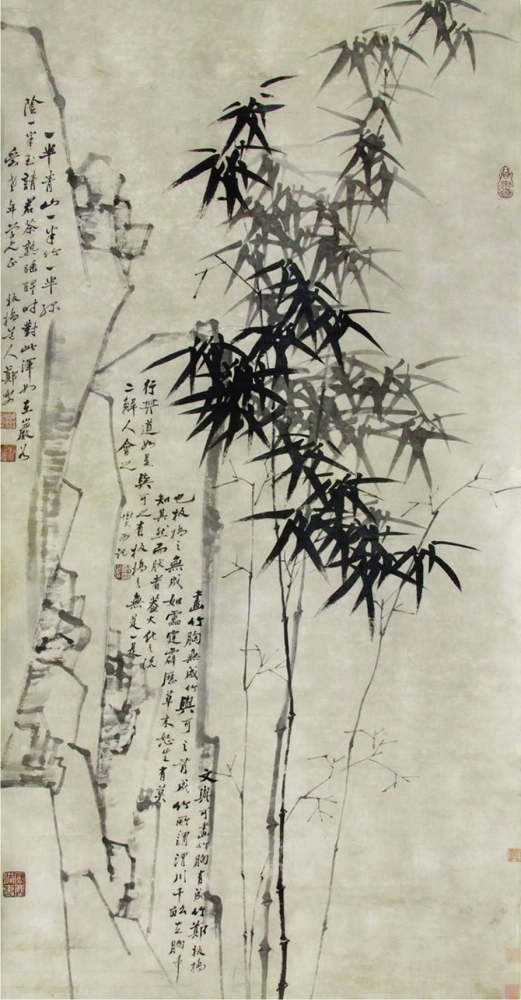 文與可畫竹胸有成竹鄭板橋
畫竹胸無成竹與可之有成竹所謂渭川千畝在胸中
也板橋之無成如雷霆霹靂草木怒生有莫
知其然而然者蓋大化之流
行其道如是與可之有板橋之無是一是
二解人會之
燮又記
一半青山一半竹一半綠
陰一半玉請君茶熟睡醒時對此渾如在巖谷
年學兄正 板橋道人鄭燮